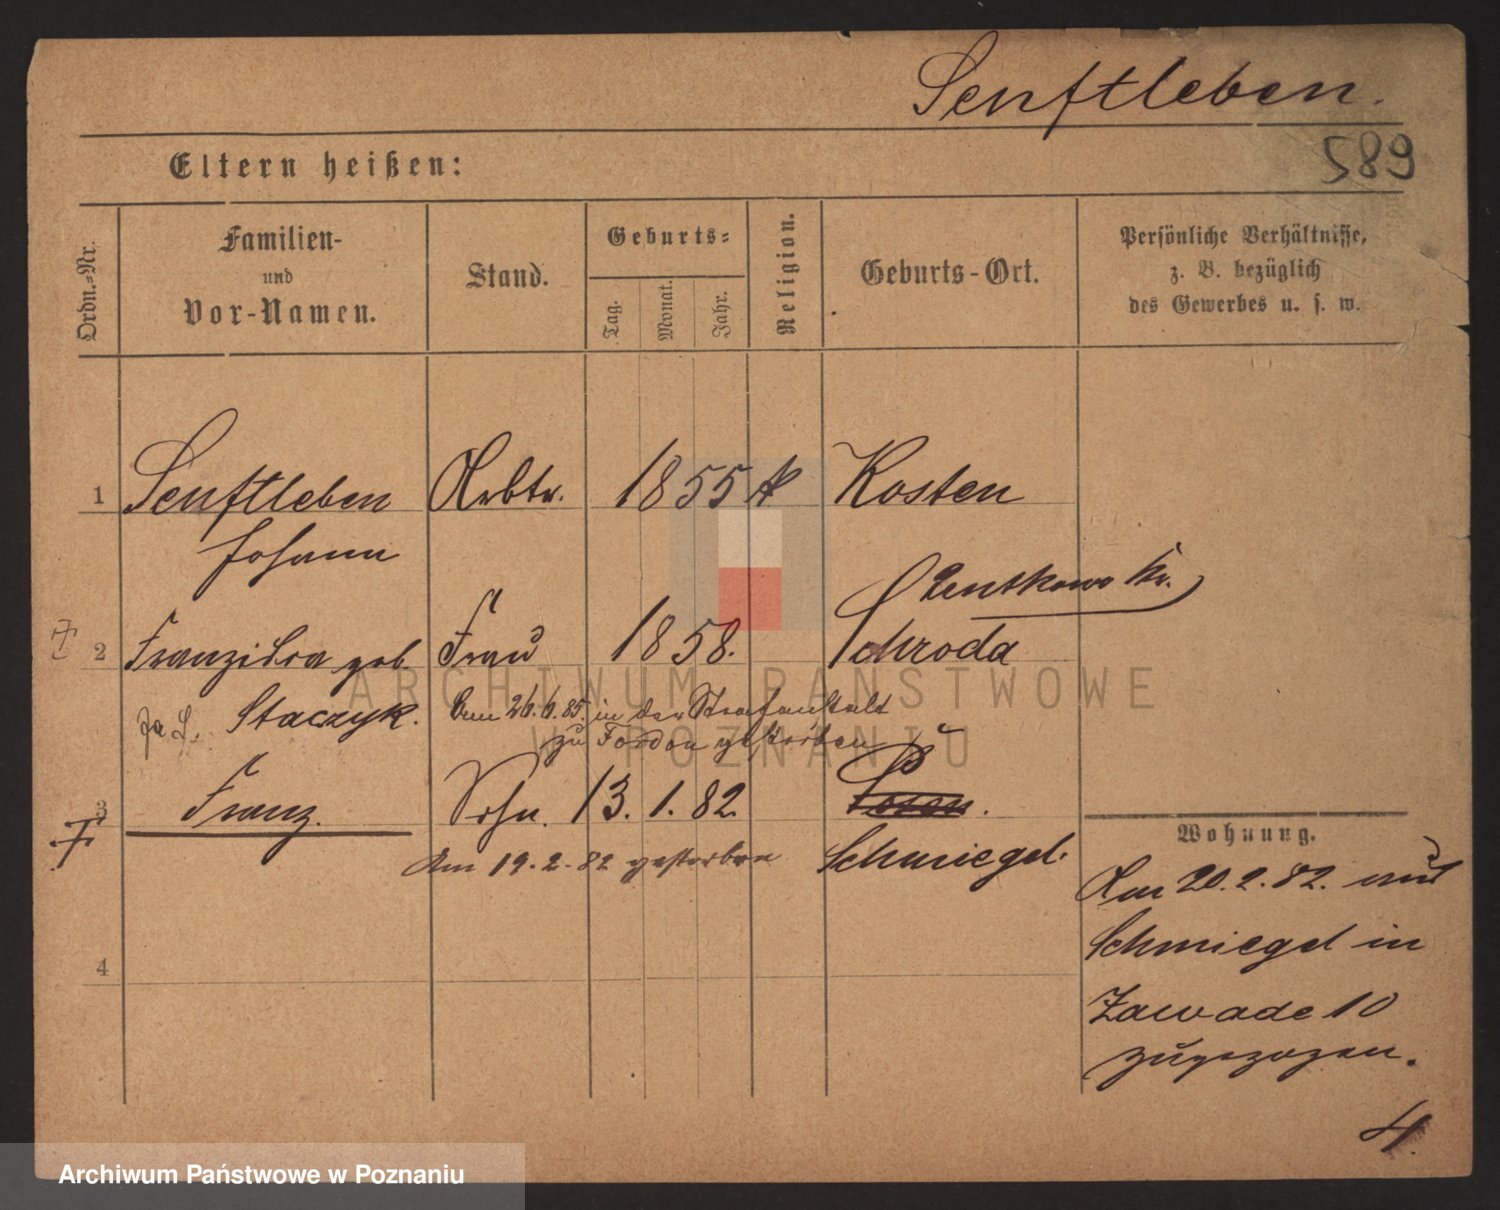 Senftleben.
589
Eltern heißen:
Ordn.-Nr.
Familien-
und
Vor-Namen.
Stand.
Geburts-
Tag.
Monat.
Jahr.
Religion.
Geburts-Ort.
Persönliche Verhältnisse,
z. B. bezüglich
des Gewerbes u. s. w.
1 Senftleben Arbtr. 1855 Kosten
Johann
Zentkowo Kr.
2 Franziska geb. Frau 1858. Schroda
Staczyk. Am 26.6.85. in der Strafanstalt
zu Fordon gestorben
3 Franz. Sohn. 13. 1. 82. Posen.
Am 19. 2. 82 gestorben Schmiegel.
4
Wohnung.
Am 20.2.82. aus
Schmiegel in
Zawade 10
zugezogen.
4.
ARCHIWUM PAŃSTWOWE
W POZNANIU
Archiwum Państwowe w Poznaniu